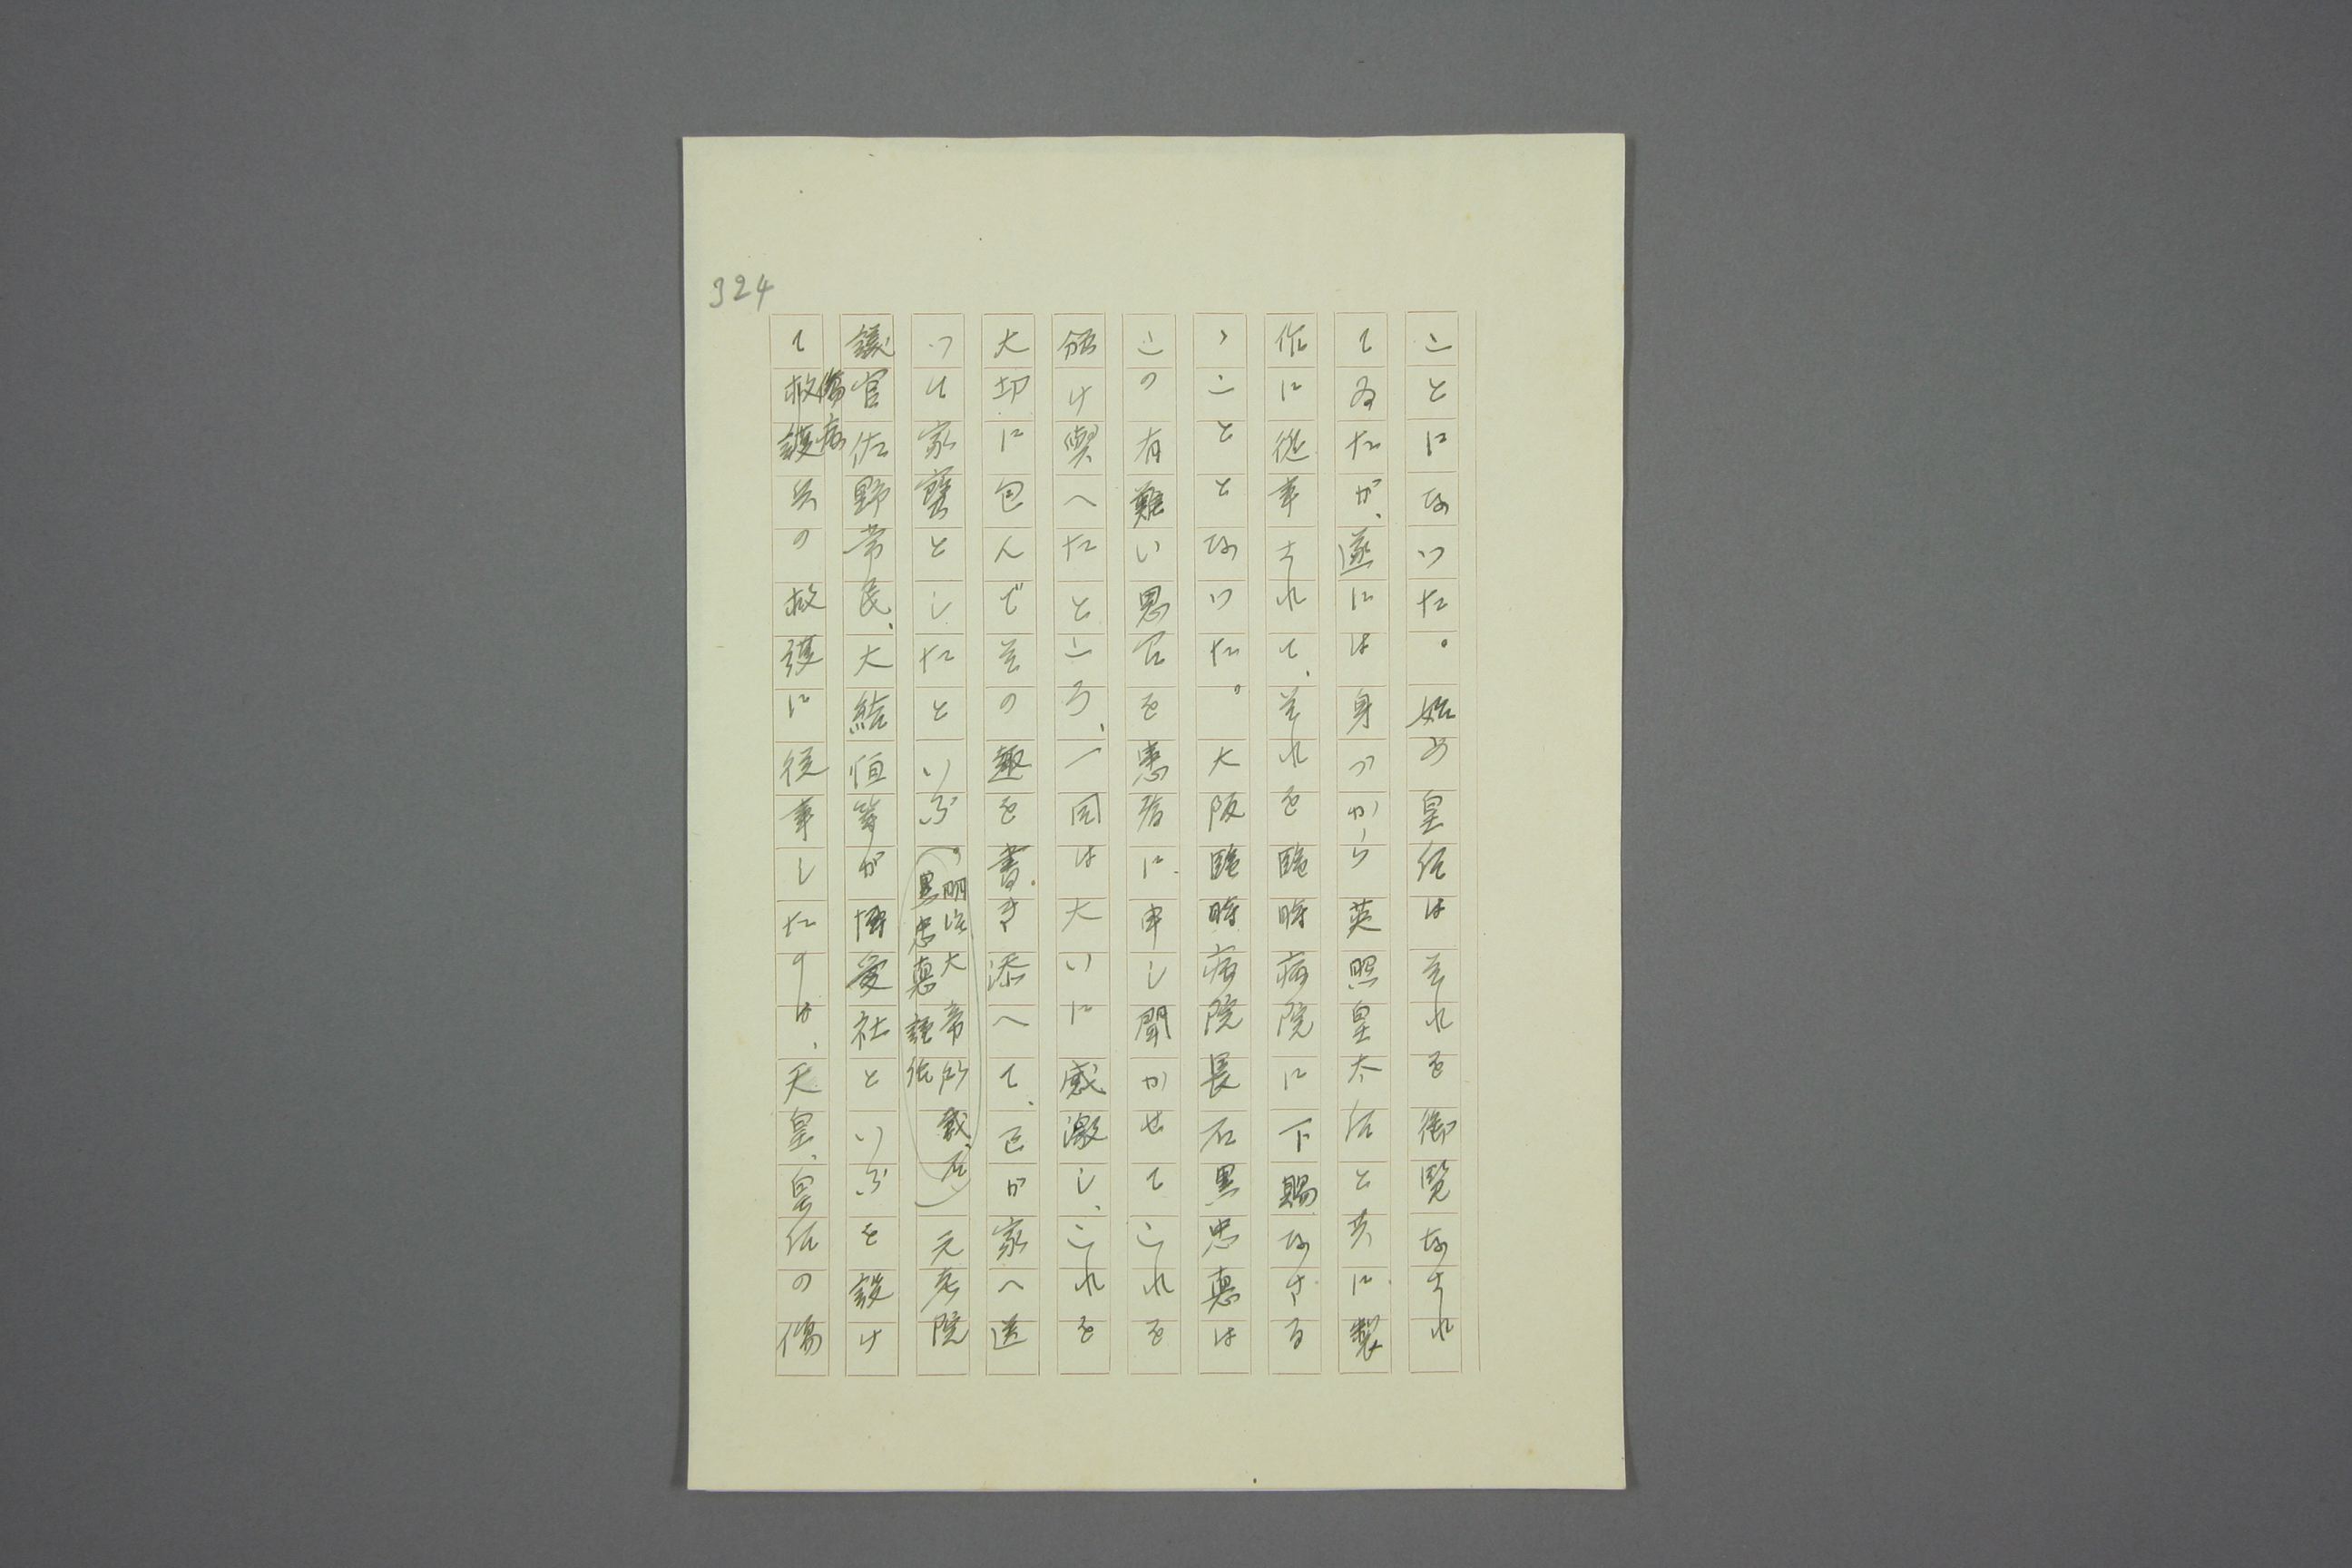 324
ことになつた。始め皇后はそれを御覧なされ
てゐたが、遂には身づから英照皇太后と共に製
作に従事されて、それを臨時病院に下賜なさる
ゝことゝなつた。大阪臨時病院長石黒忠悳は
この有難い思召を患者に申し聞かせてこれを
頒け與へたところ、一同は大いに感激し、これを
大切に包んでその趣を書き添へて、己が家へ送
つて家寶としたといふ。(明治大帝所載、石黒忠悳謹話)元老院
議官佐野常民、大給恒等が博愛社といふを設け
て傷病兵の救護に従事したのは、天皇、皇后の傷